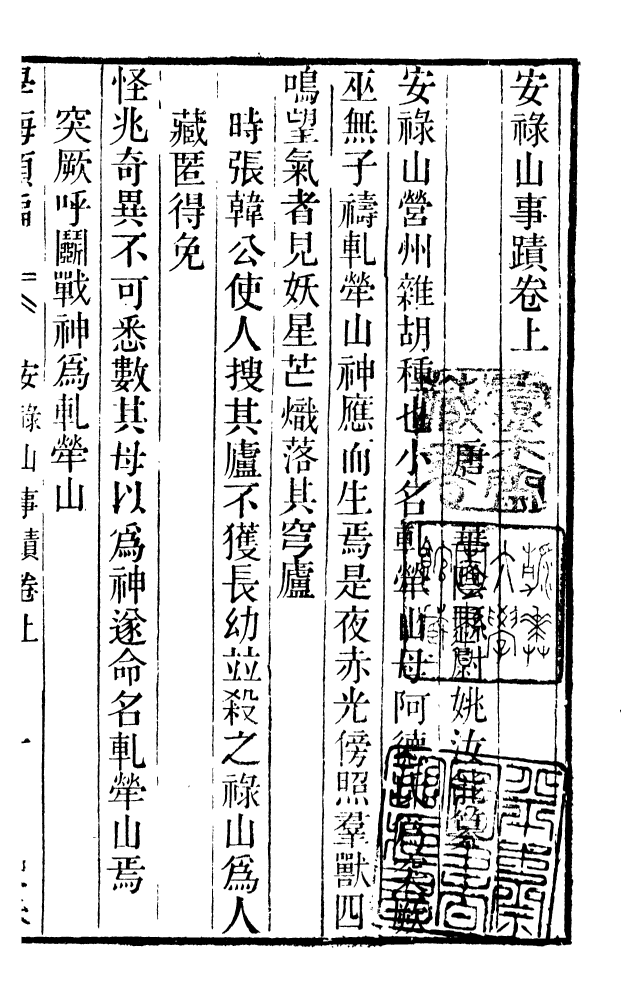 安祿山事蹟卷上
唐 華陰縣尉姚汝能纂
安祿山營州雜胡種也小名軋犖山母阿德氏爲突厥
巫無子禱軋犖山神應而生焉是夜赤光傍照羣獸四
鳴望氣者見妖星芒熾落其穹廬
時張韓公使人搜其廬不獲長幼並殺之祿山爲人
藏匿得免
怪兆奇異不可悉數其母以爲神遂命名軋犖山焉
突厥呼鬭戰神爲軋犖山
學海類編 安祿山事蹟卷上 一